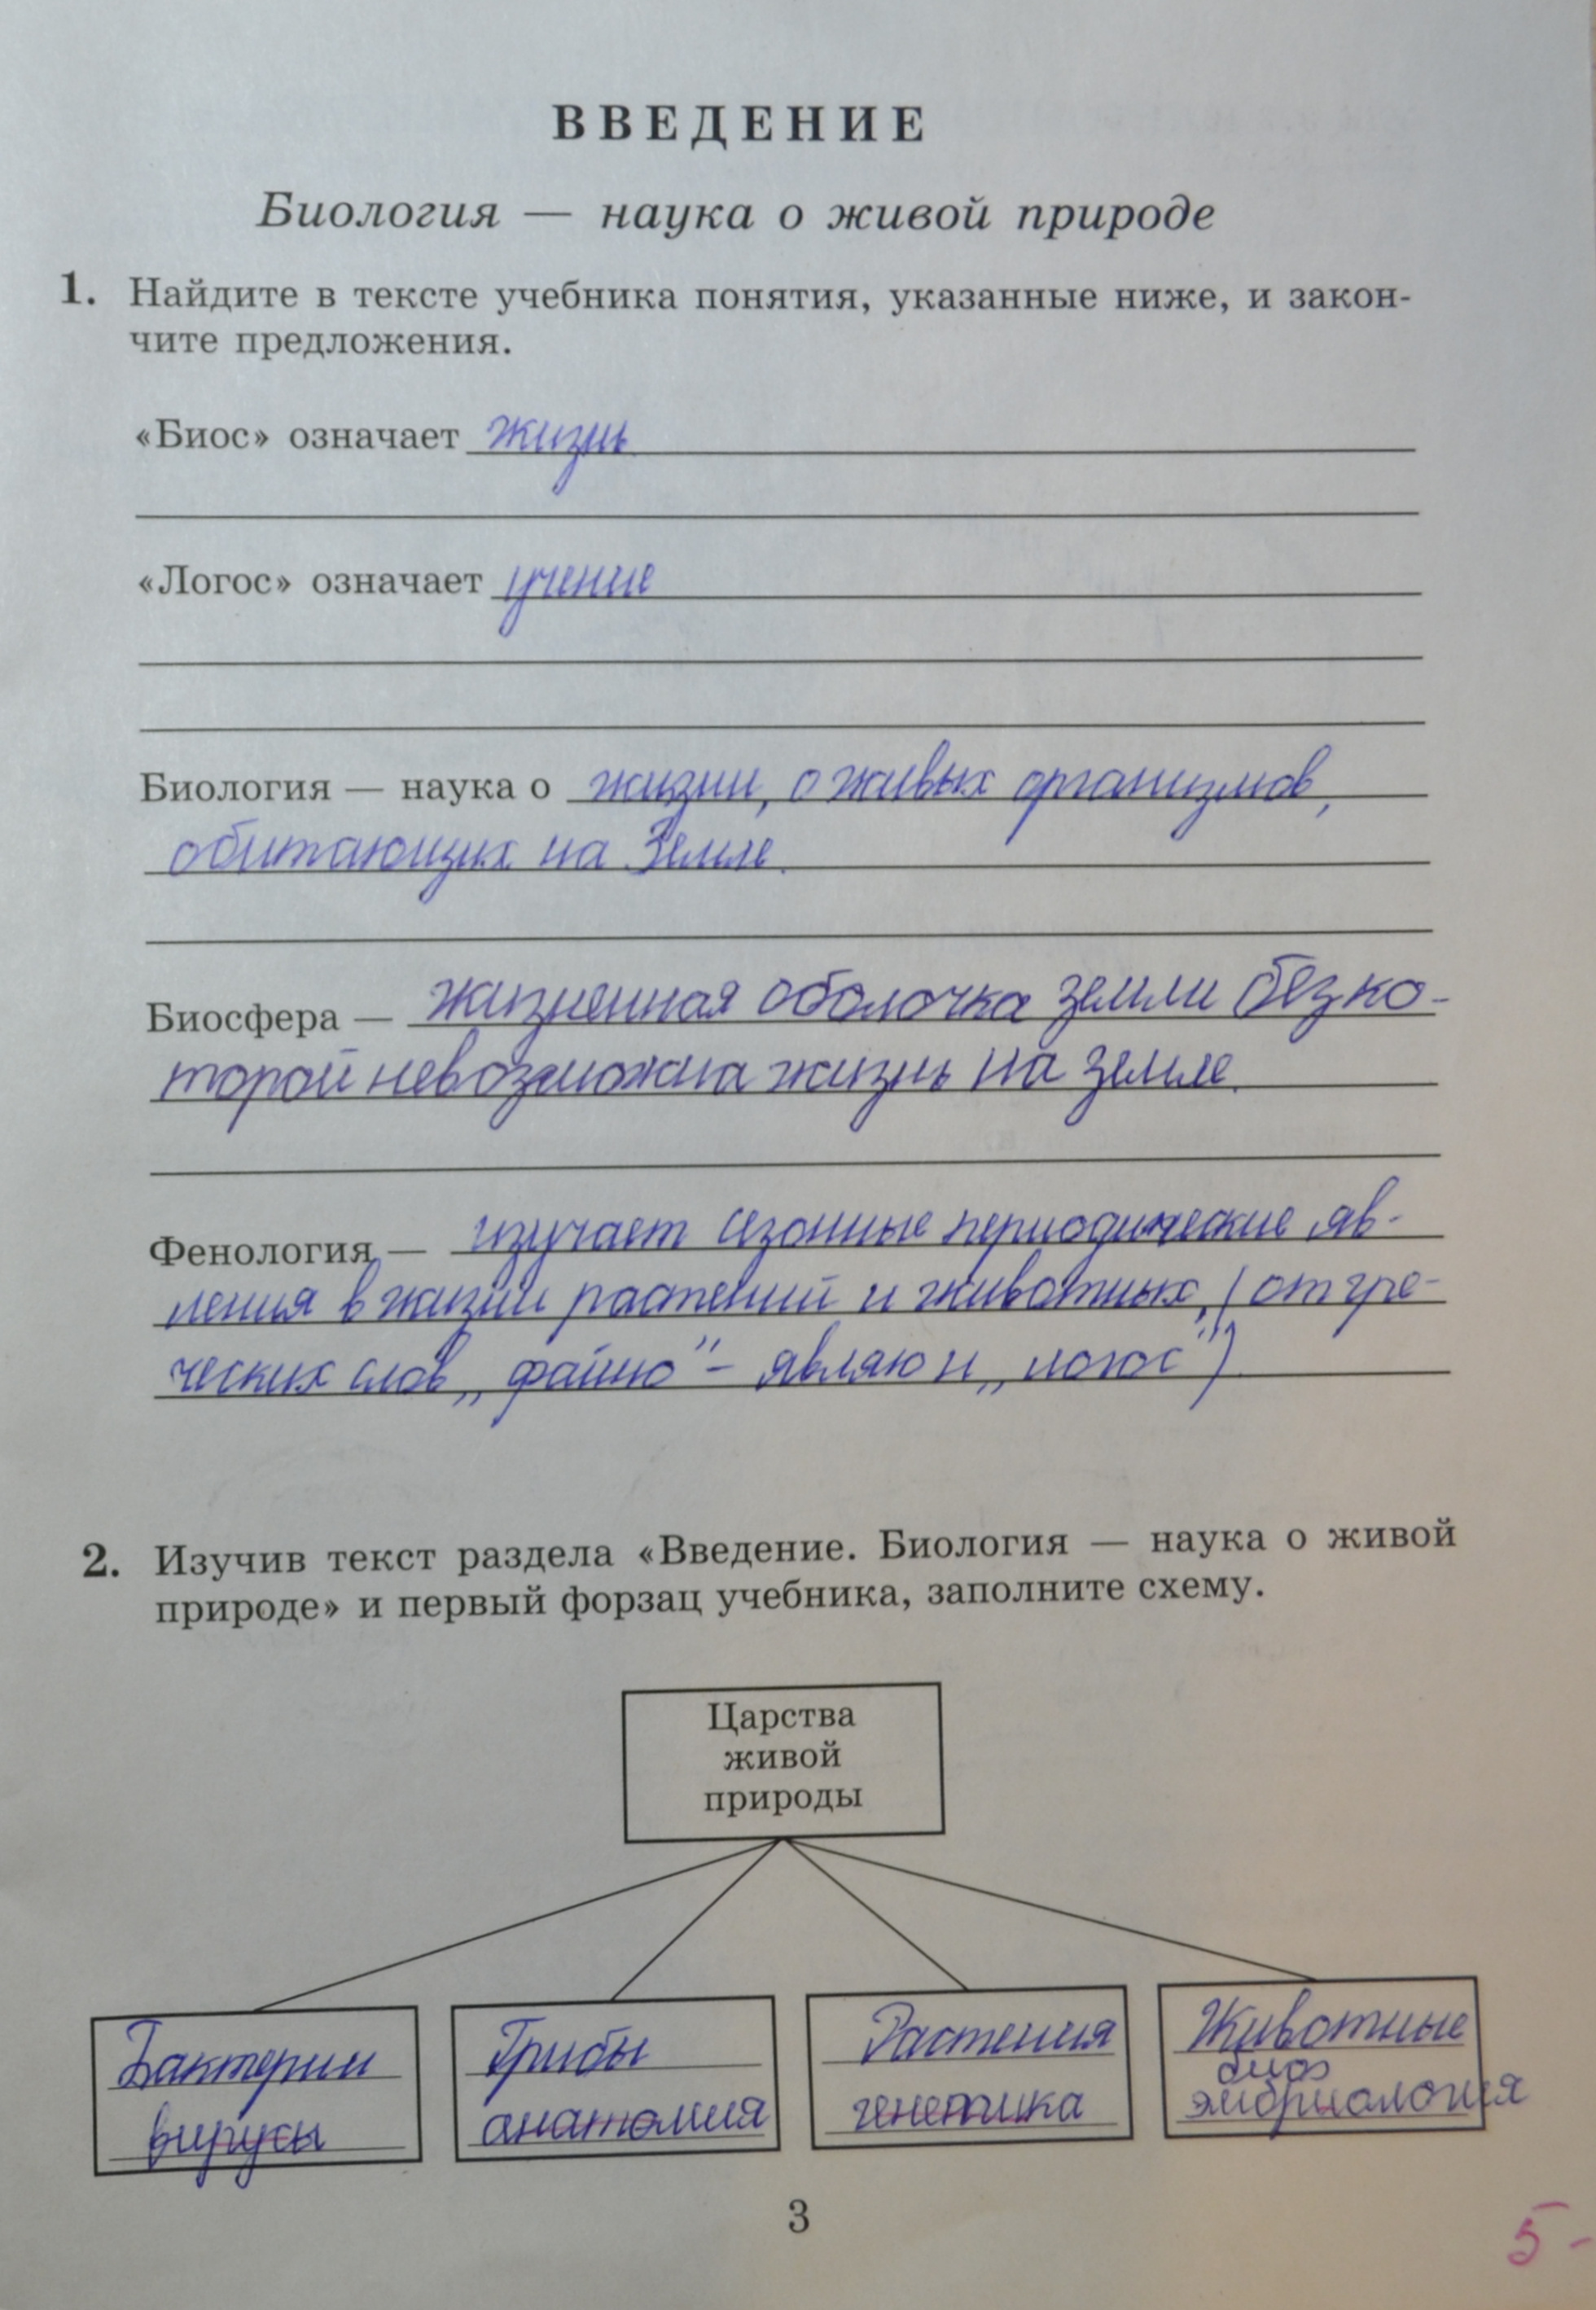 ВВЕДЕНИЕ
Биология — наука о живой природе
1. Найдите в тексте учебника понятия, указанные ниже, и закон-
чите предложения.
«Биос» означает жизнь
«Логос» означает учение
Биология — наука о жизни, о живых организмов,
обитающих на Земле.
Биосфера — жизненная оболочка земли без ко-
торой невозможна жизнь на земле.
Фенология — изучает сезонные периодические яв-
ления в жизни растений и животных, (от гре-
ческих слов „файно" – являю и „логос")
2. Изучив текст раздела «Введение. Биология — наука о живой
природе» и первый форзац учебника, заполните схему.
Царства
живой
природы
Бактерии Грибы Растения Животные
вирусы анатомия генетика эмбриология
3
5-